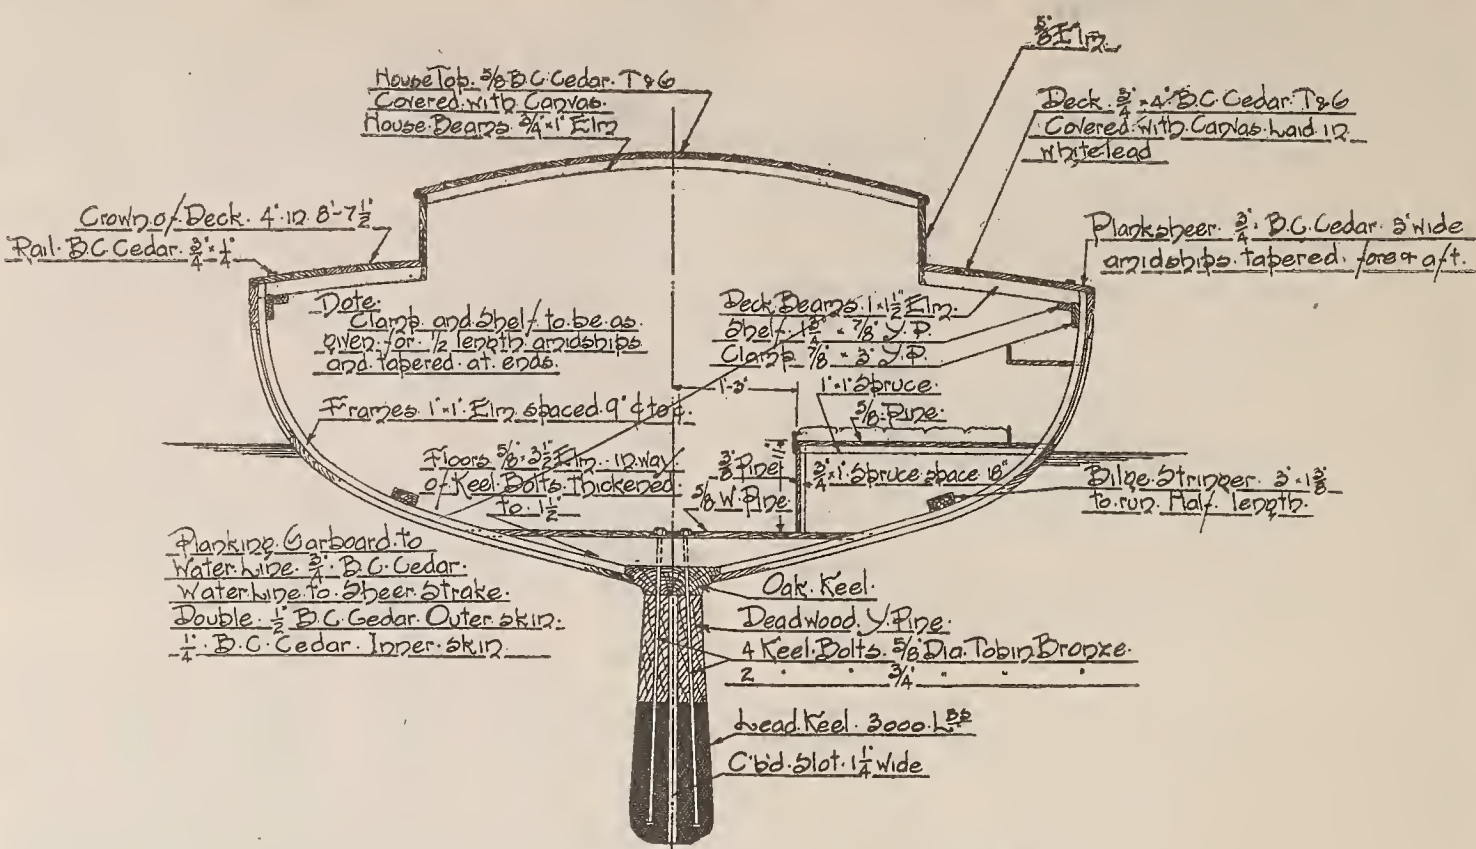 5/8" Elm
House Top. 5/8 B.C. Cedar. T & G
Covered with Canvas.
House Beams. 3/4" × 1" Elm
Deck. 3/4" × 4" B.C. Cedar. T & G
Covered with Canvas Laid in
white lead
Crown of Deck. 4" in 8'-7 1/2
Rail. B.C. Cedar. 3/4" × 1/4"
Planksheer. 3/4" B.C. Cedar. 3" wide
amidships. tapered. fore & aft.
Note.
Clamp and Shelf to be as
given for 1/2 length amidships
and tapered at ends.
Deck Beams. 1 × 1 1/2" Elm
Shelf. 1 3/4" × 7/8" Y.P.
Clamp 7/8" × 3" Y.P.
1'-3"
1" × 1" Spruce.
5/8 Pine.
Frames. 1" × 1" Elm spaced 9" c to c.
Floors 5/8" × 3 1/2" Elm. in way
of Keel Bolts Thickened
to 1 1/2"
3/8" Pine
3/4" × 1" Spruce space 18"
5/8 W. Pine.
Bilge Stringer. 3" × 1 3/8"
to run Half length.
Planking Garboard to
Water Line. 3/4" B.C. Cedar.
Water Line to Sheer Strake.
Double 1/2" B.C. Cedar Outer skin.
1/4" B.C. Cedar Inner skin.
Oak Keel.
Deadwood. Y. Pine.
4 Keel Bolts. 5/8 Dia. Tobin Bronze.
2 " " 3/4" " " "
Lead Keel. 3000 Lbs
C'b'd. Slot. 1 1/4" wide